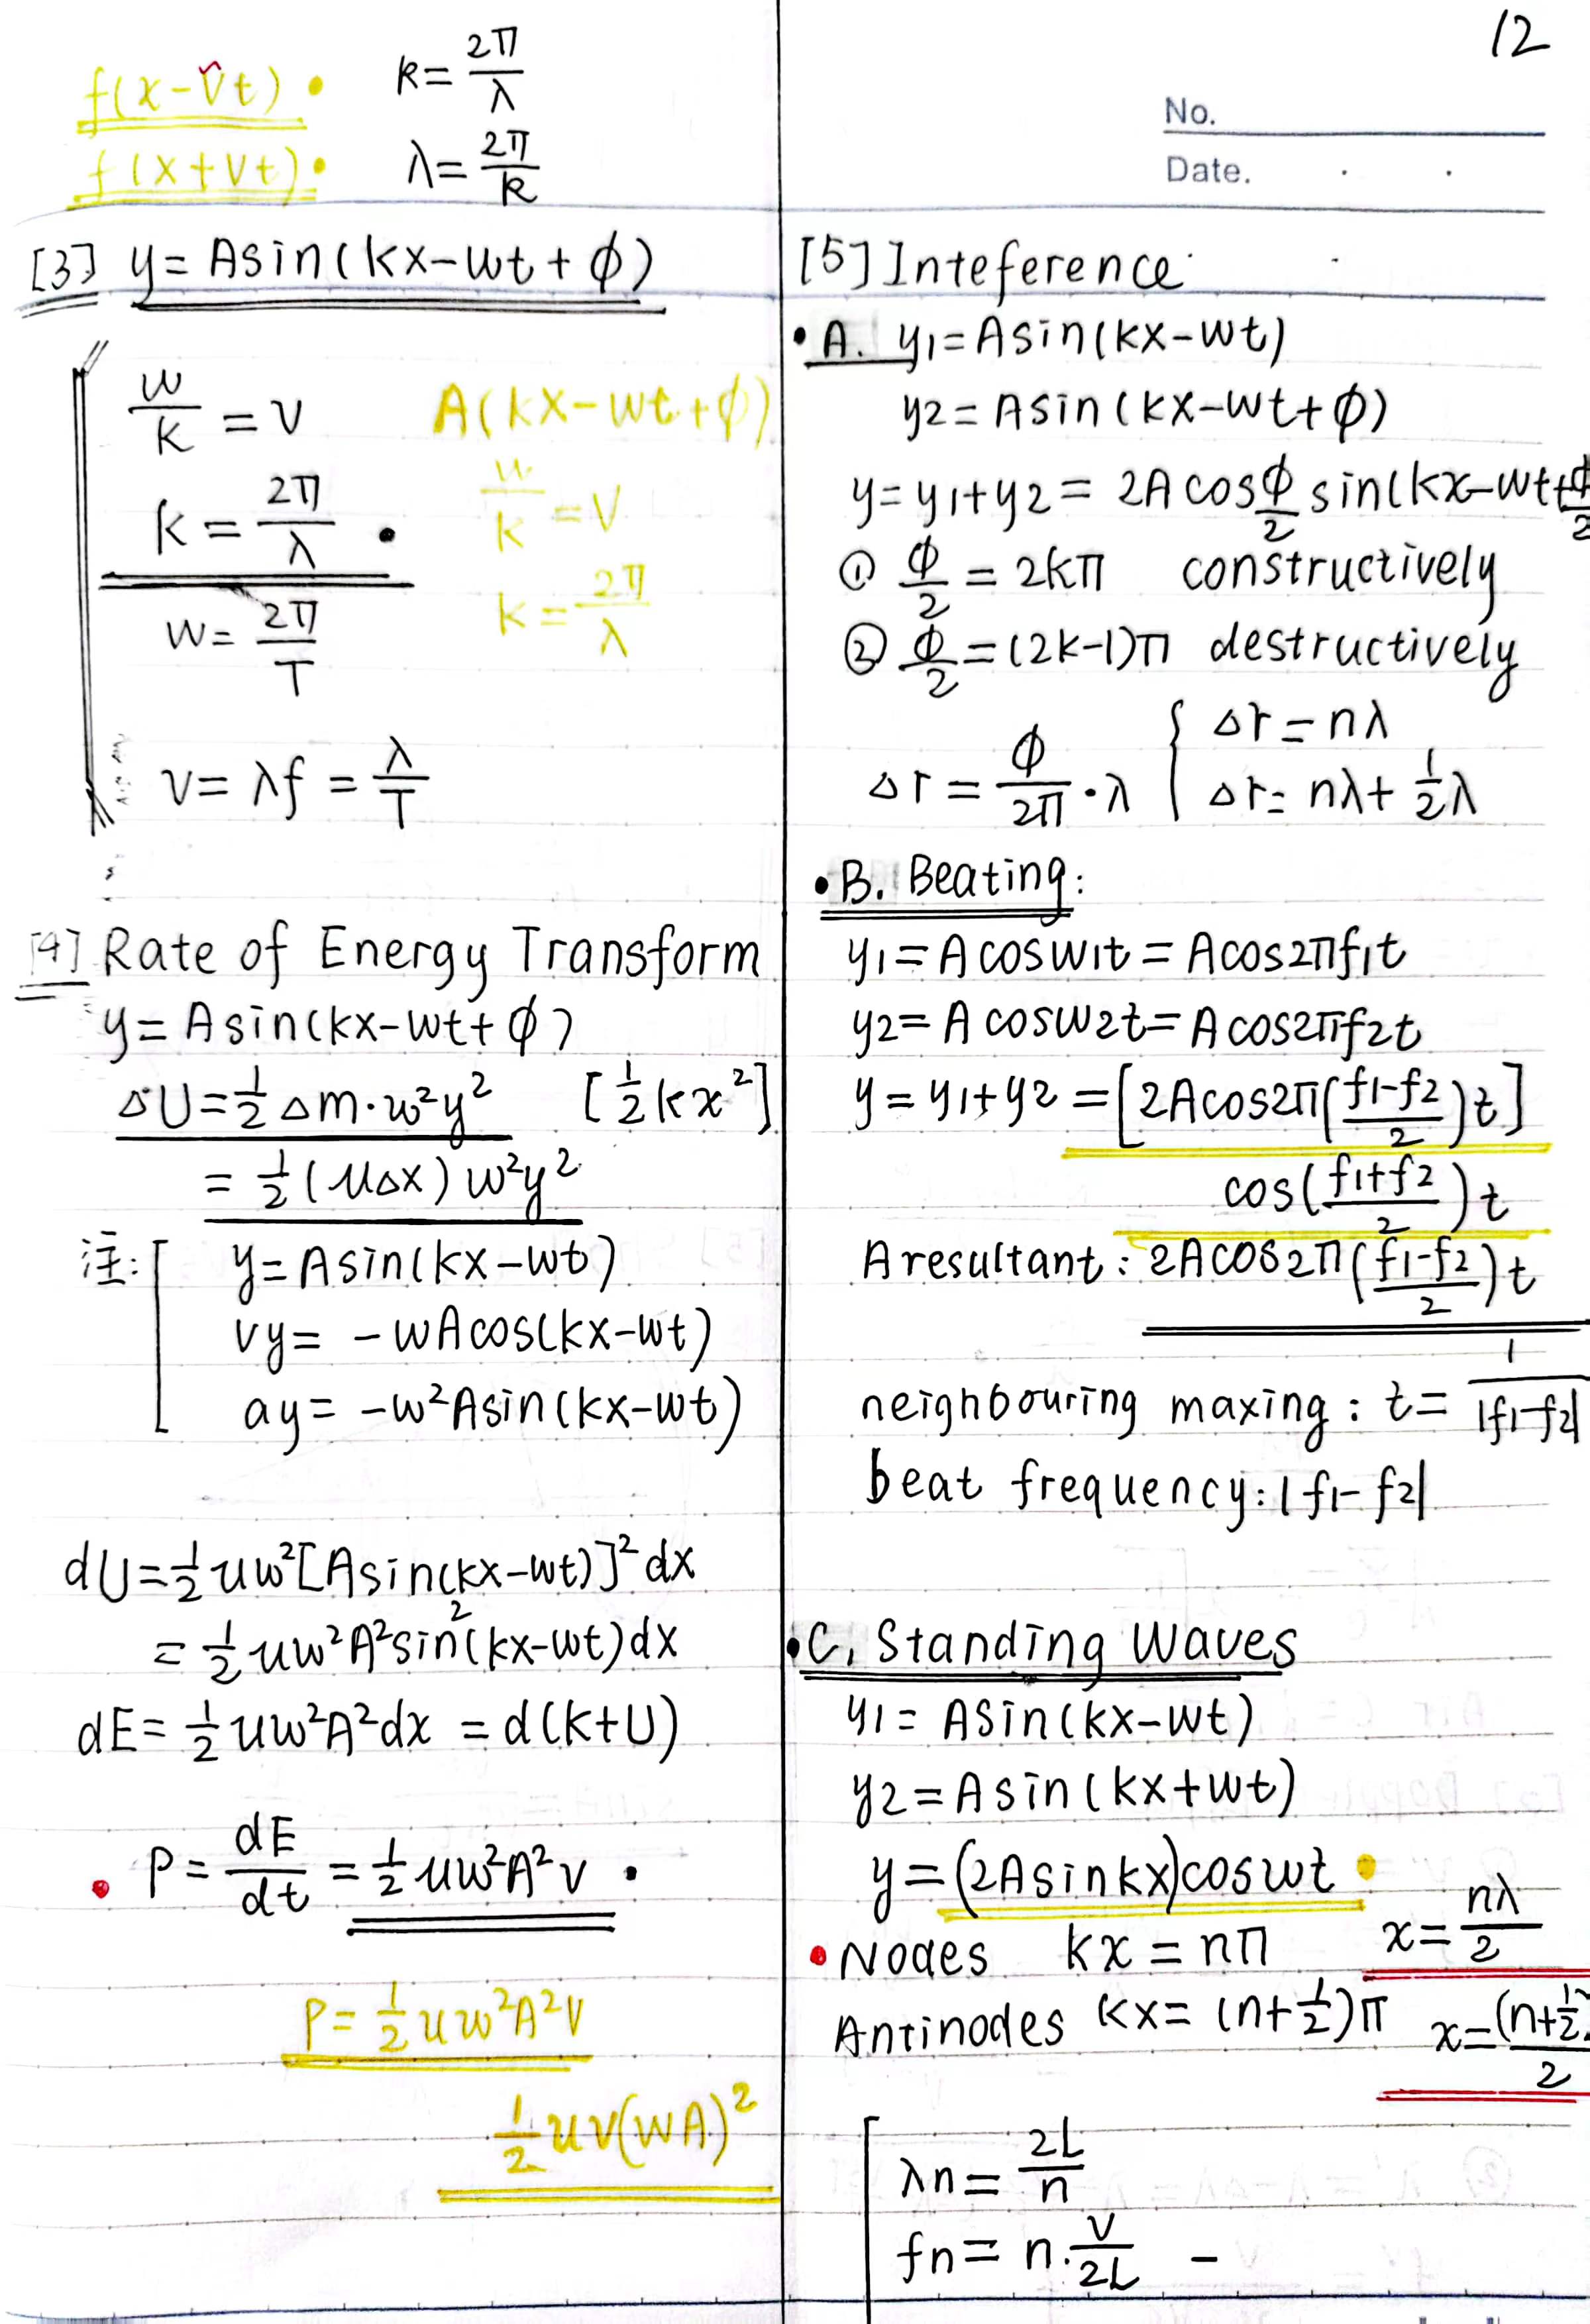 12
No.
Date.
f(x-vt) • k=2π/λ
f(x+vt) • λ=2π/k
[3] y=Asin(kx-wt+φ)
w/k = v
k = 2π/λ •
w= 2π/T
v= λf = λ/T
A(kx-wt+φ)
w/k = v
k = 2π/λ
[4] Rate of Energy Transform
y= Asin(kx-wt+φ)
△U=1/2 △m·w²y² [1/2 kx²]
= 1/2 (u△x) w²y²
注: y= Asin(kx-wt)
vy= -wAcos(kx-wt)
ay= -w²Asin(kx-wt)
dU=1/2 uw²[Asin(kx-wt)]²dx
= 1/2 uw²A²sin²(kx-wt)dx
dE= 1/2 uw²A²dx = d(k+U)
• P= dE/dt = 1/2 uw²A²v •
P= 1/2 uw²A²v
1/2 uv(wA)²
[5] Inteference
• A. y1=Asin(kx-wt)
y2= Asin(kx-wt+φ)
y= y1+y2= 2Acosφ/2 sin(kx-wt+φ/2
① φ/2 = 2kπ constructively
② φ/2 =(2k-1)π destructively
△r = φ/2π ·λ { △r = nλ
△r= nλ+ 1/2λ
• B. Beating:
y1=Acosw1t = Acos2πf1t
y2= Acosw2t= Acos2πf2t
y= y1+y2 =[2Acos2π(f1-f2/2)t]
cos(f1+f2/2)t
A resultant: 2Acos2π(f1-f2/2)t
neighbouring maxing: t= 1/|f1-f2|
beat frequency: |f1-f2|
• C. Standing Waves
y1= Asin(kx-wt)
y2=Asin(kx+wt)
y=(2Asinkx)coswt •
• Nodes kx = nπ x= nλ/2
Antinodes kx= (n+1/2)π x=(n+1/2)/2
λn= 2L/n
fn= n· v/2L -